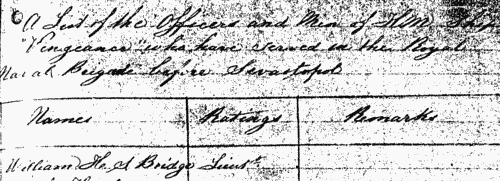 A List of the Officers and Men of H.M. Ship
"Vengeance" who have served in the Royal
Naval Brigade before Sevastopol
Names Ratings Remarks
William He. A Bridge Lieut.